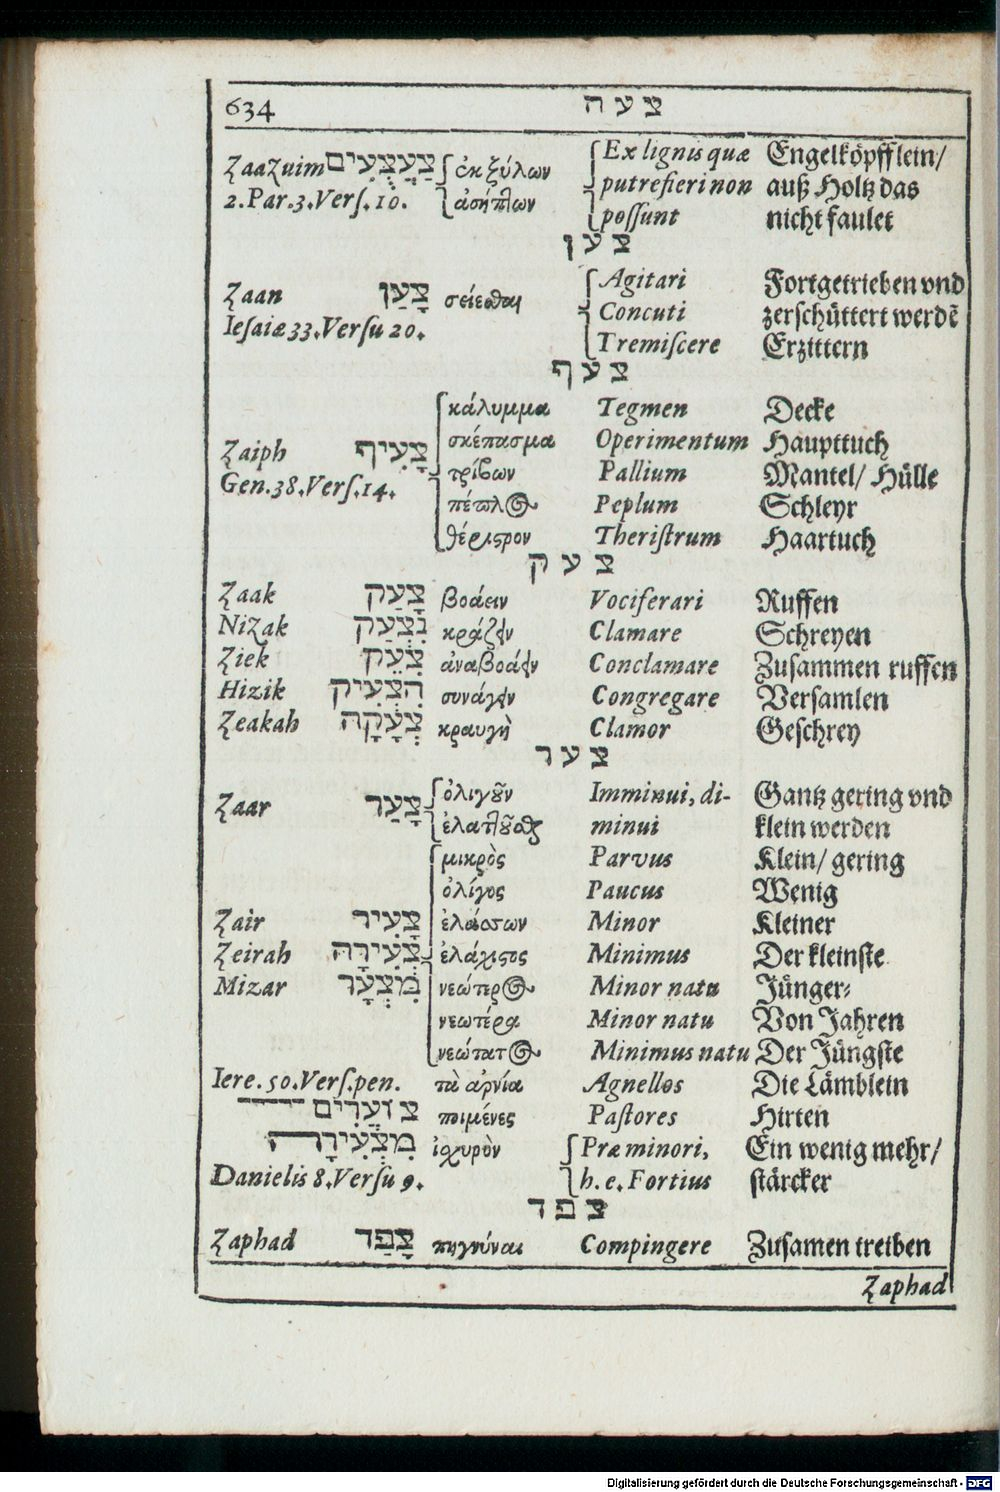 634 צעה
Zaazuim צַעֲצֻעִים ἐκ ξύλων Ex lignis quæ Engelköpfflein/
2. Par. 3. Vers. 10. ἀσήπτων putrefieri non auß Holtz das
possunt nicht faulet
צען
Zaan צָעַן σείεσθαι Agitari Fortgetrieben vnd
Iesaiæ 33. Versu 20. Concuti zerschüttert werdẽ
Tremiscere Erzittern
צעף
κάλυμμα Tegmen Decke
Zaiph צָעִיף σκέπασμα Operimentum Haupttuch
Gen. 38. Vers. 14. τρίβων Pallium Mantel/ Hülle
πέπλος Peplum Schleyr
θέριστρον Theristrum Haartuch
צעק
Zaak צָעַק βοάειν Vociferari Ruffen
Nizak נִצְעַק κράζειν Clamare Schreyen
Ziek צִעֵק ἀναβοάειν Conclamare Zusammen ruffen
Hizik הִצְעִיק συνάγειν Congregare Versamlen
Zeakah צְעָקָה κραυγὴ Clamor Geschrey
צער
Zaar צָעַר ὀλιγοῦν Imminui, di- Gantz gering vnd
ἐλαττοῦσθαι minui klein werden
μικρὸς Parvus Klein/ gering
ὀλίγος Paucus Wenig
Zair צָעִיר ἐλάσσων Minor Kleiner
Zeirah צְעִירָה ἐλάχιστος Minimus Der kleinste
Mizar מִצְעָר νεώτερος Minor natu Jünger⸗
νεωτέρα Minor natu Von Jahren
νεώτατος Minimus natu Der Jüngste
Iere. 50. Vers. pen. τὰ ἀρνία Agnellos Die Lämblein
ποιμένες Pastores Hirten
מִצְּעִירָה ἰσχυρὸν Præ minori, Ein wenig mehr/
Danielis 8. Versu 9. h. e. Fortius stärcker
צפד
Zaphad צָפַד πηγνύναι Compingere Zusamen treiben
Zaphad
Digitalisierung gefördert durch die Deutsche Forschungsgemeinschaft - DFG